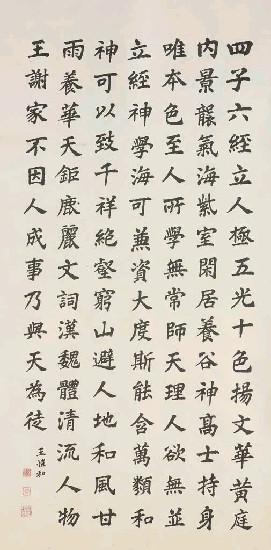 四子六經立人極五光十色揚文華黃庭
內景龍氣海紫室閑居養谷神高士持身
唯本色至人所學無常師天理人欲無並
立經神學海可兼資大度斯能含萬類和
神可以致千祥絕壑窮山避人地和風甘
雨養華天鉅鹿麗文詞漢魏體清流人物
王謝家不因人成事乃與天為徒
王惟和